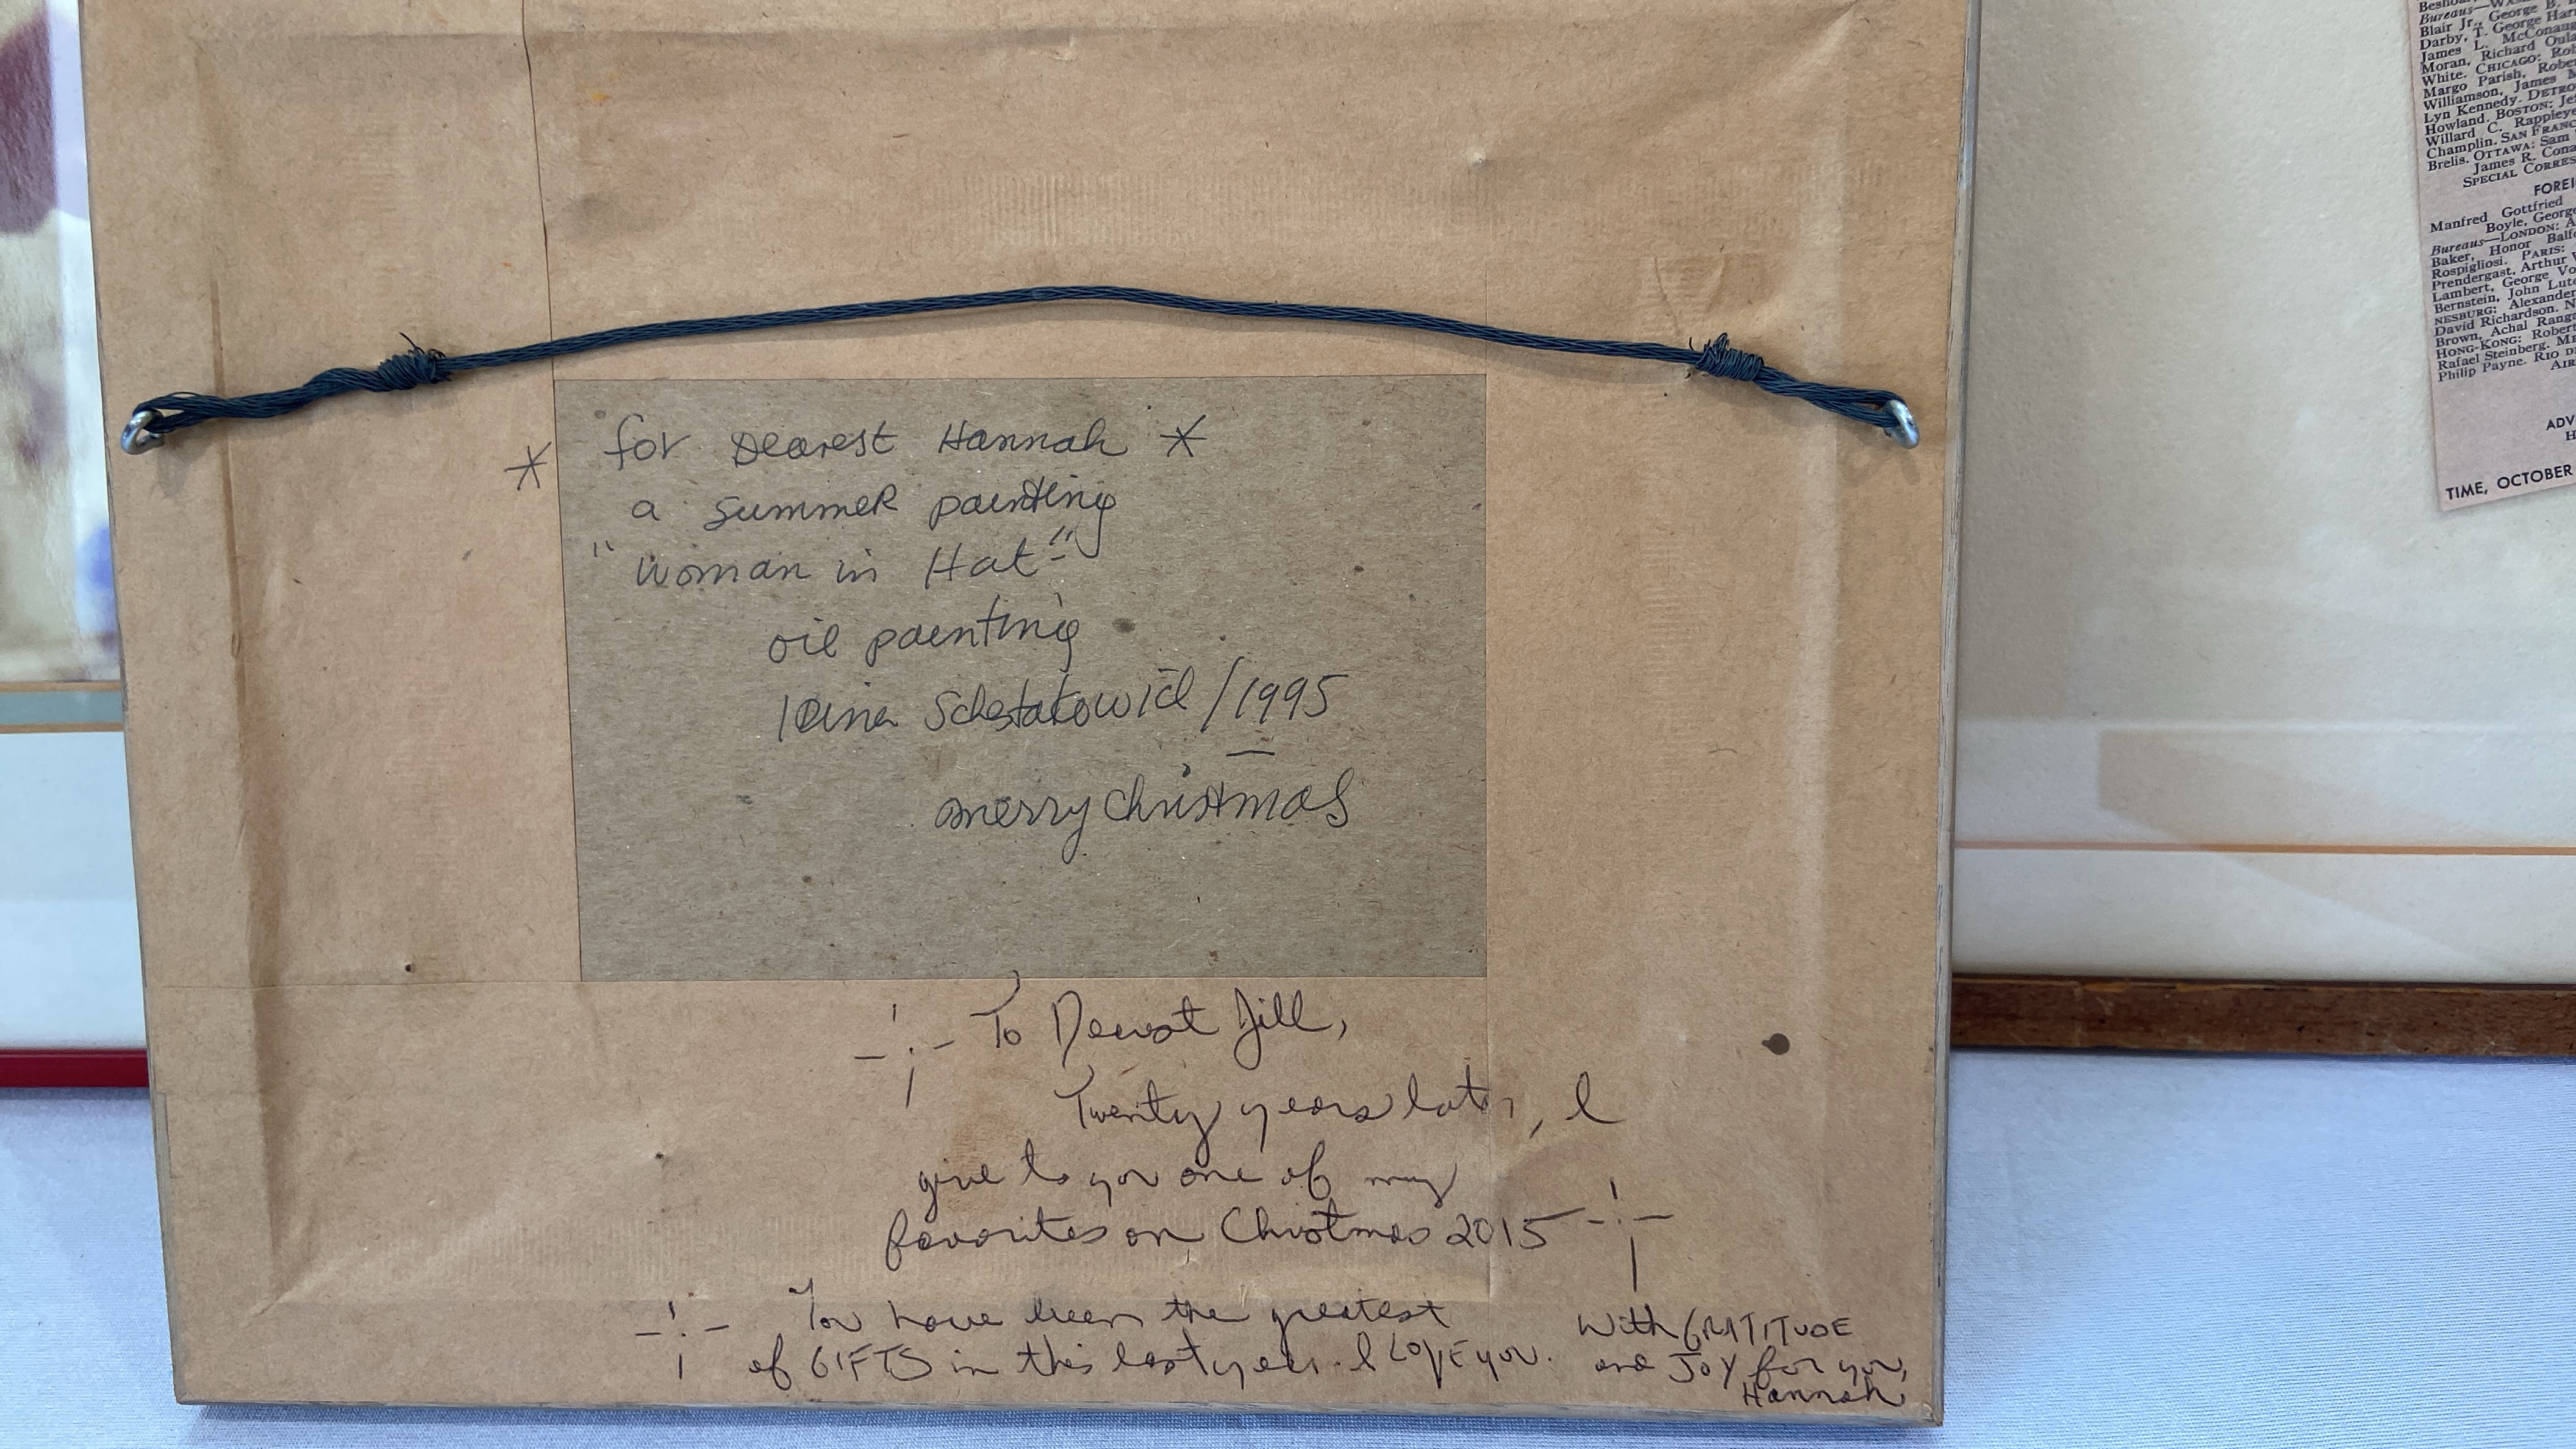 * for Dearest Hannah *
a summer painting
"Woman in Hat"
oil painting
Schestakowid / 1995
merry christmas
To Dearest Jill,
Twenty years later, I
give to you one of my
favorites on Christmas 2015
You have been the greatest
of GIFTS in this last year. I LOVE you.
With GRATITUDE
and JOY for you,
Hannah
Bureaus—WAS
Blair Jr., George B.
Darby, T. George Har
James L. McConaug
Moran, Richard Oula
White. CHICAGO: Rob
Margo Parish, Robe
Williamson, James M
Lyn Kennedy. DETRO
Howland. BOSTON: Je
Willard C. Rappleye
Champlin. SAN FRANC
Brelis. OTTAWA: Sam
James R. Cona
SPECIAL CORRES
FOREI
Manfred Gottfried
Boyle, George
Bureaus—LONDON: A
Baker, Honor Balf
Rospigliosi. PARIS:
Prendergast, Arthur W
Lambert, George Vo
Bernstein, John Lute
NESBURG: Alexander
David Richardson. N
Brown, Achal Rang
HONG-KONG: Robert
Rafael Steinberg. ME
Philip Payne. RIO D
AIR
ADV
H
TIME, OCTOBER